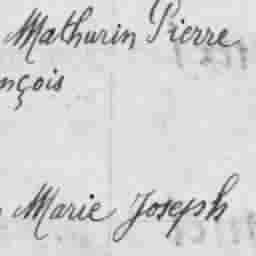 Mathurin Pierre
nçois
Marie Joseph